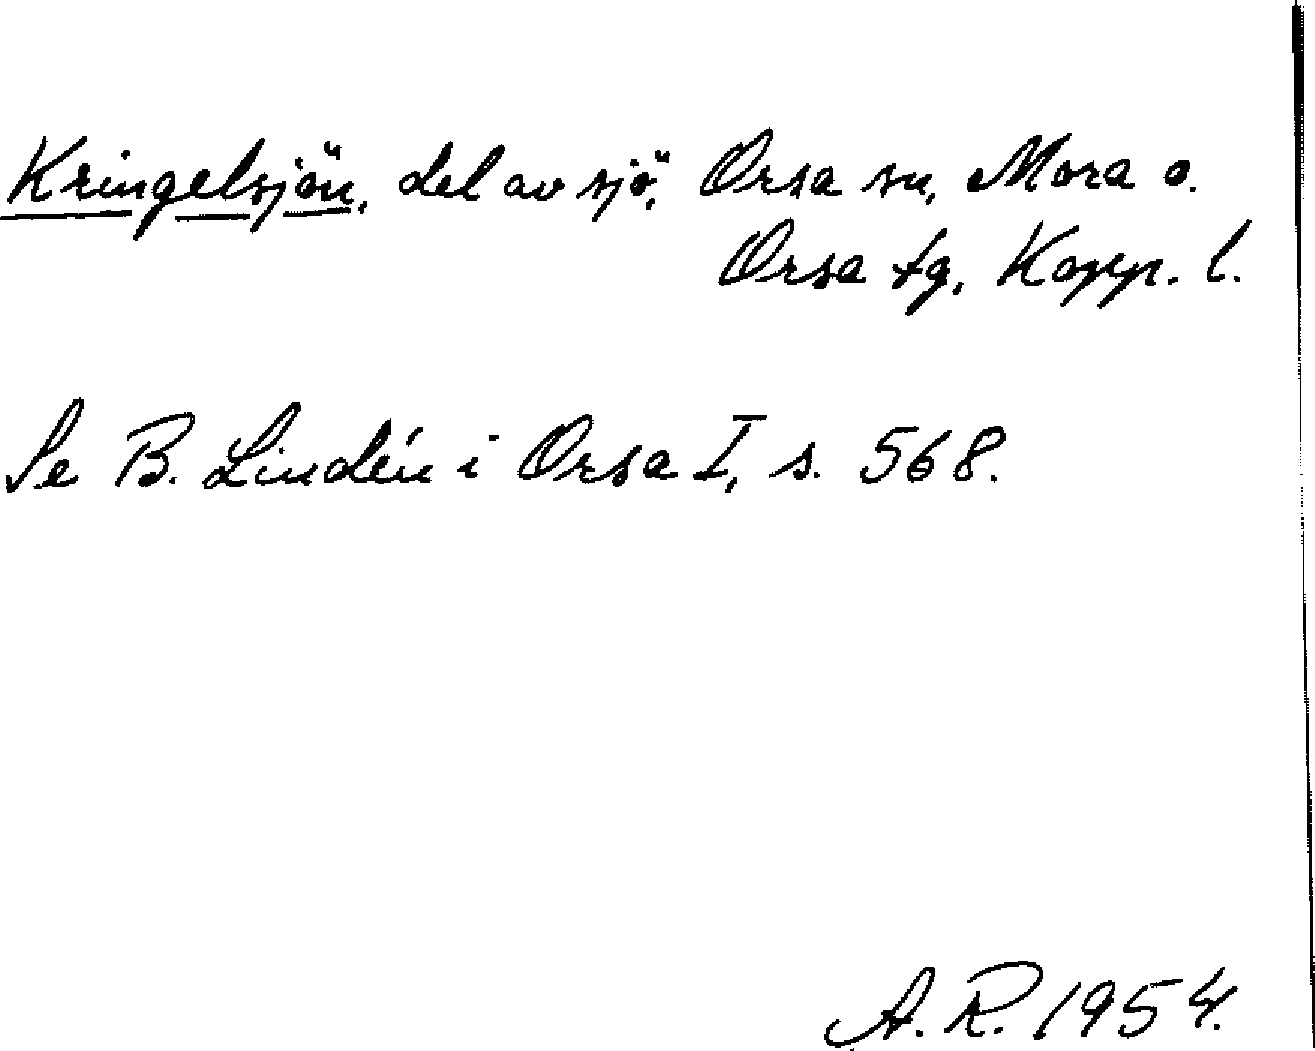 Kringelsjön, del av sjö, Orsa sn, Mora o.
Orsa tg, Kopp. l.
Se B. Lindén i Orsa I, s. 568.
A. R. 1954.